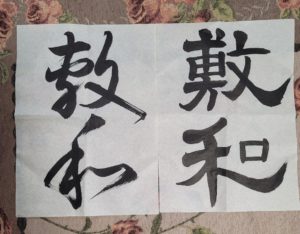 敷和
敷和